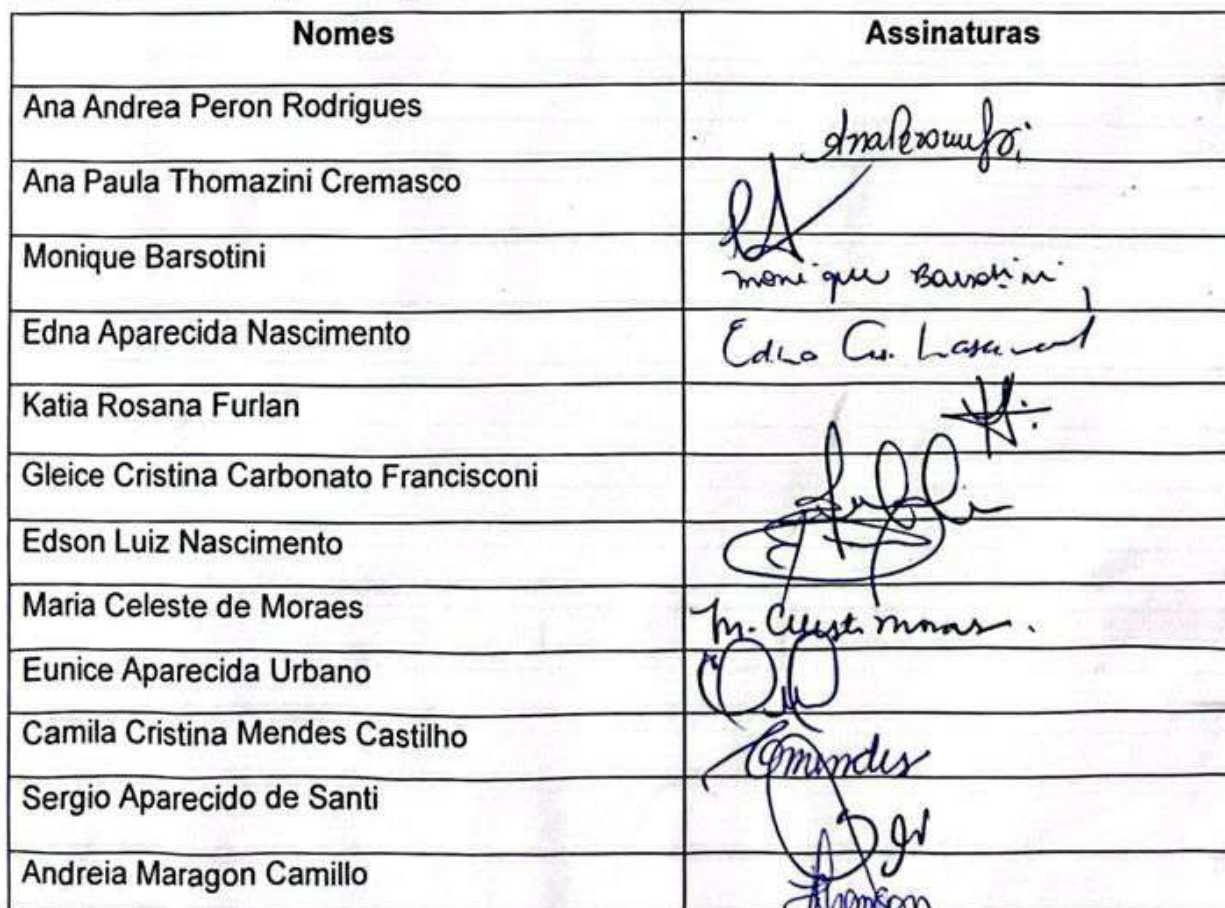 Nomes Assinaturas
Ana Andrea Peron Rodrigues
Ana Paula Thomazini Cremasco
Monique Barsotini monique Barsotini
Edna Aparecida Nascimento Edna
Katia Rosana Furlan
Gleice Cristina Carbonato Francisconi
Edson Luiz Nascimento
Maria Celeste de Moraes M. Celeste Moraes.
Eunice Aparecida Urbano
Camila Cristina Mendes Castilho Cmendes
Sergio Aparecido de Santi
Andreia Maragon Camillo